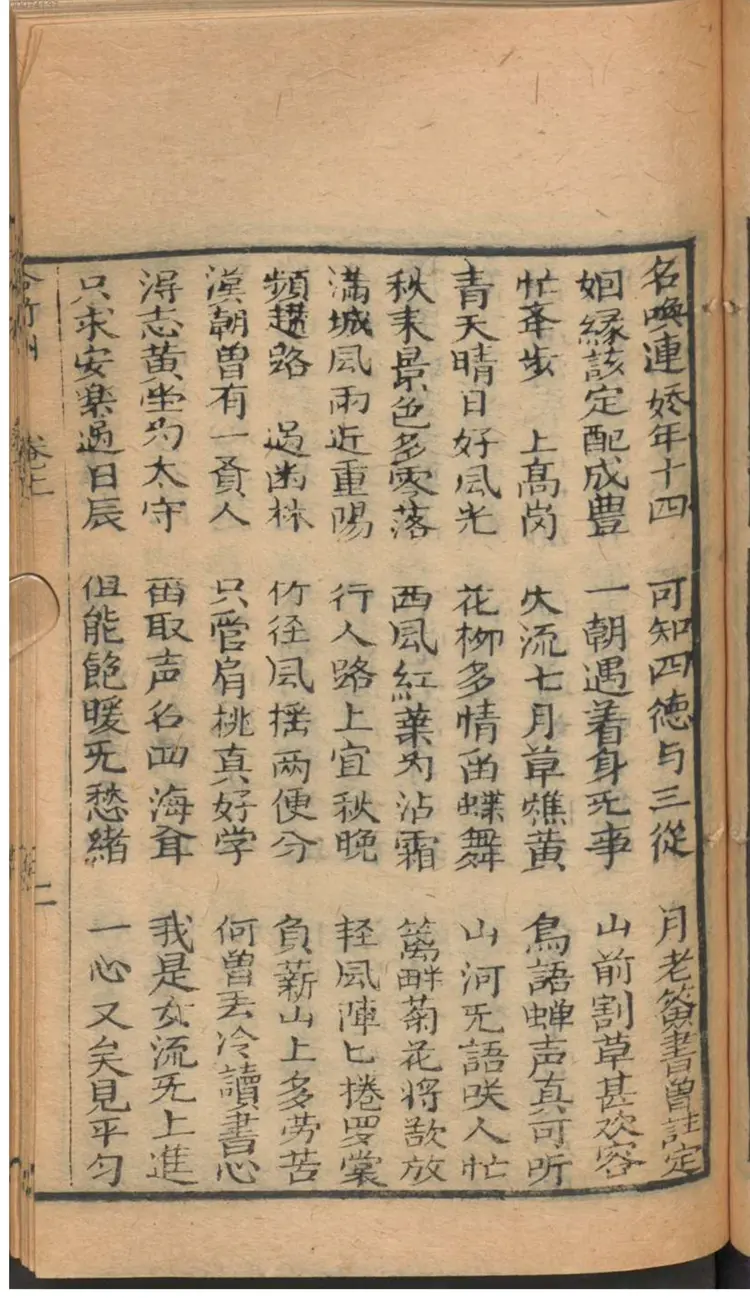 名喚連嬌年十四 可知四德与三從 月老簿書曽註定
姻緣該定配成豊 一朝遇着身旡事 山前割草甚欢容
忙奔步 上髙岗 火流七月草樵黄 鳥語蝉声真可听
青天晴日好风光 花柳多情畄蝶舞 山河旡語咲人忙
秋来景色多零落 西风紅葉为沾霜 篱畔菊花将放
满城风雨近重陽 行人路上宜秋晚 轻风陣匕捲罗裳
頻趱路 过幽林 竹径风摇两便分 負薪山上多劳苦
漢朝曽有一貧人 只管肩挑真好学 何曽丢冷讀書心
淂志黄坐为太守 畱取声名四海耳 我是女流旡上進
只求安楽過日辰 但能飽暖旡愁緒 一心又矣見平匀
卷上
二